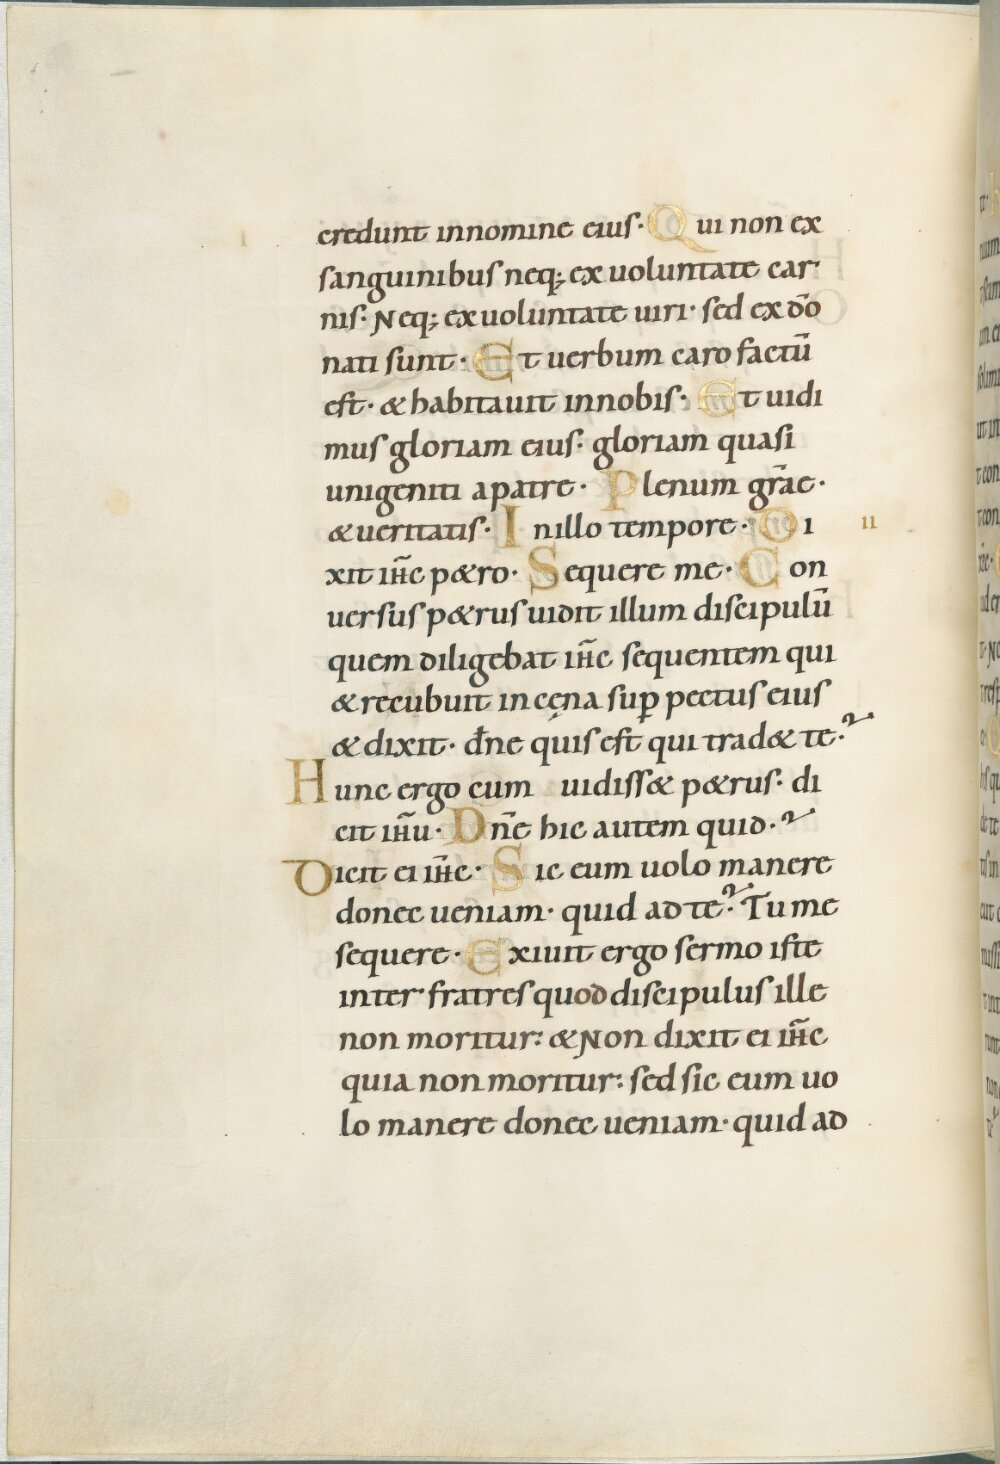 credunt innomine eius· Qui non ex
sanguinibus neq; ex uoluntate car
nis· Neq; ex uoluntate uiri· sed ex dō
nati sunt· Et uerbum caro factū
est· & habitauit innobis· Et uidi
mus gloriam eius· gloriam quasi
unigeniti apatre· Plenum gr̄ae·
& ueritatis· Inillo tempore· Di II
xit ih̄c p&ro· Sequere me· Con
uersus p&rus uidit illum discipulū
quem diligebat ih̄c sequentem qui
& recubuit in cęna sup̄ pectus eius
& dixit· dn̄e quis est qui trad& te·?
Hunc ergo cum uidiss& p&rus· di
cit ih̄u· Dn̄e hic autem quid·?
Dicit ei ih̄c· Sic eum uolo manere
donec ueniam· quid ad te·? Tu me
sequere· Exiuit ergo sermo iste
inter fratres quod discipulus ille
non moritur: & Non dixit ei ih̄c
quia non moritur: sed sic eum uo
lo manere donec ueniam· quid ad